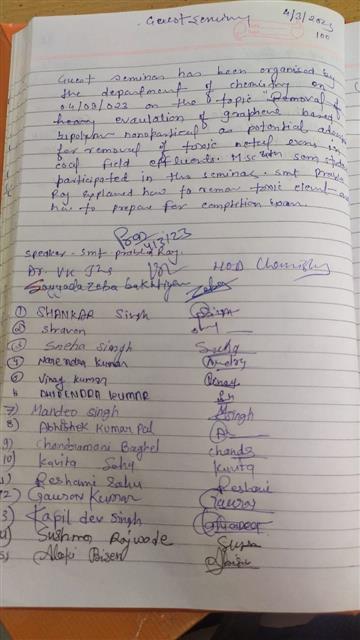 Guest seminar
4/3/2023
100
Guest seminar has been organised by
the department of chemistry on
04/03/023 on the topic "Removal of
heavy evaulation of graphene based
nanopartical as potential
for removal of toxic metal exons in
coal field effluents. Msc sem students
participated in this seminar. smt prabha
Roy explained how to remove toxic element and
how to prepare for completion exam.
4/3/23
speaker - smt prabha Roy.
Dr. VK HOD Chemistry
Sayyada Zoba Zoba
① SHANKAR Singh
② Shravan
③ Sneha singh Sneha
④ Narendra Kumar
⑤ Vinay Kumar Vinay
6 DHIRENDRA KUMAR
7) Mandeo singh Singh
8) Abhishek Kumar Pal
9) Chandramani Baghel chandr
10) Kavita Sahu Kavita
11) Reshami Sahu Reshami
12) Gaurav Kumar Gaurav
13) Kapil dev singh
14) Sushma Rajwade
15) Bisen